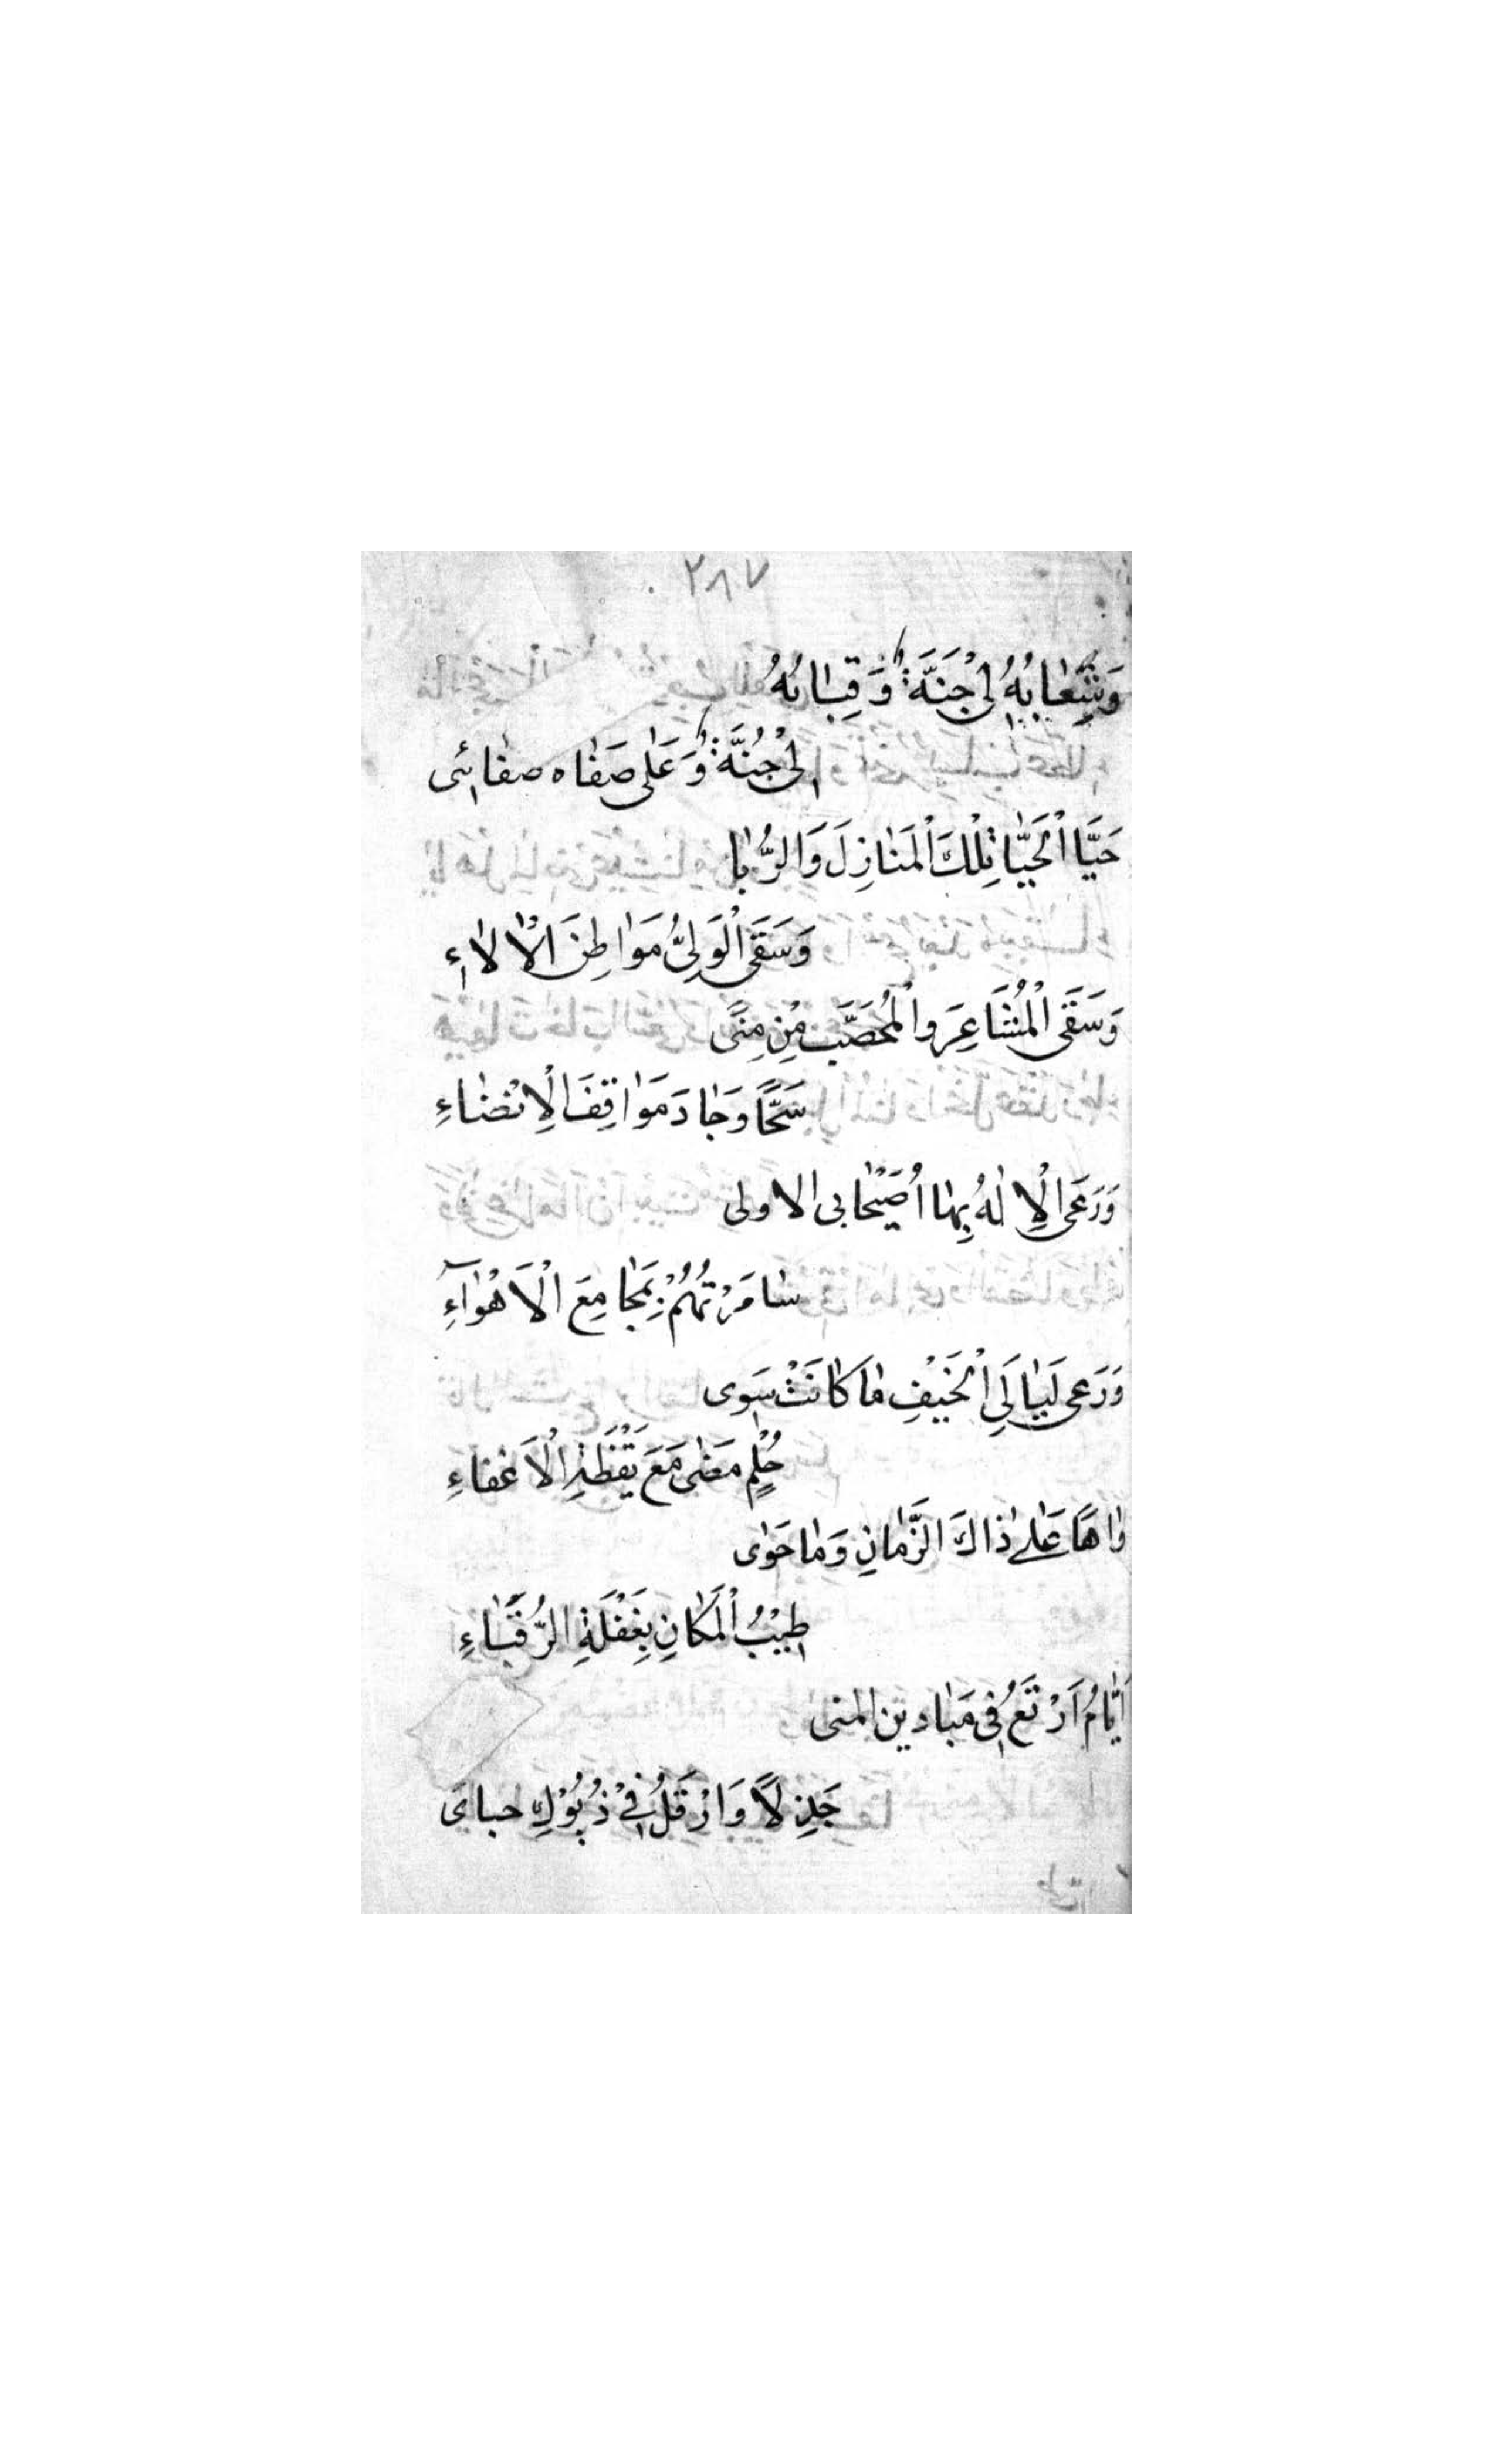 ٢٨٧
وَشِعٰابُهُ لِىْ جَنَّةٌ وَقِبٰابُهُ
لِىْ جُنَّةٌ وَعَلٰى صَفٰاه صفائى
حَيَّا الْحَيٰا تِلْكَ الْمَنٰازِلَ وَالرُّبٰا
وَسَقَى الْوَلِىُّ مَوٰاطِنَ الْاٰلاٰءِ
وَسَقَى الْمَشٰاعِرَ والْمُحَصَّبَ مِنْ مِنًى
سَحًّا وَجٰادَ مَوٰاقِفَ الْاِنْضٰاءِ
وَرَعَى الْاِلٰهُ بِهٰا اُصَيْحٰابى الاولى
سٰامَرْتُهُمْ بِمَجٰامِعَ الْاَهْوٰآءِ
وَرَعى لَيٰالِىَ الْخَيْفِ مٰا كٰانَتْ سِوى
حُلْمٍ مَضٰى مَعَ يَقْظَةِ الْاَغْفاءِ
وٰاهًا عَلٰى ذٰاكَ الزَّمٰانِ وَمٰا حَوٰى
طِيْبُ الْمَكٰانِ بِغَفْلَةِ الرُّقَبٰاءِ
اَيّٰامُ اَرْتَعُ فِى مَيٰادين المنى
جَذِلاً وَاَرْفَلُ فِىْ ذُيُوْلِ حباى